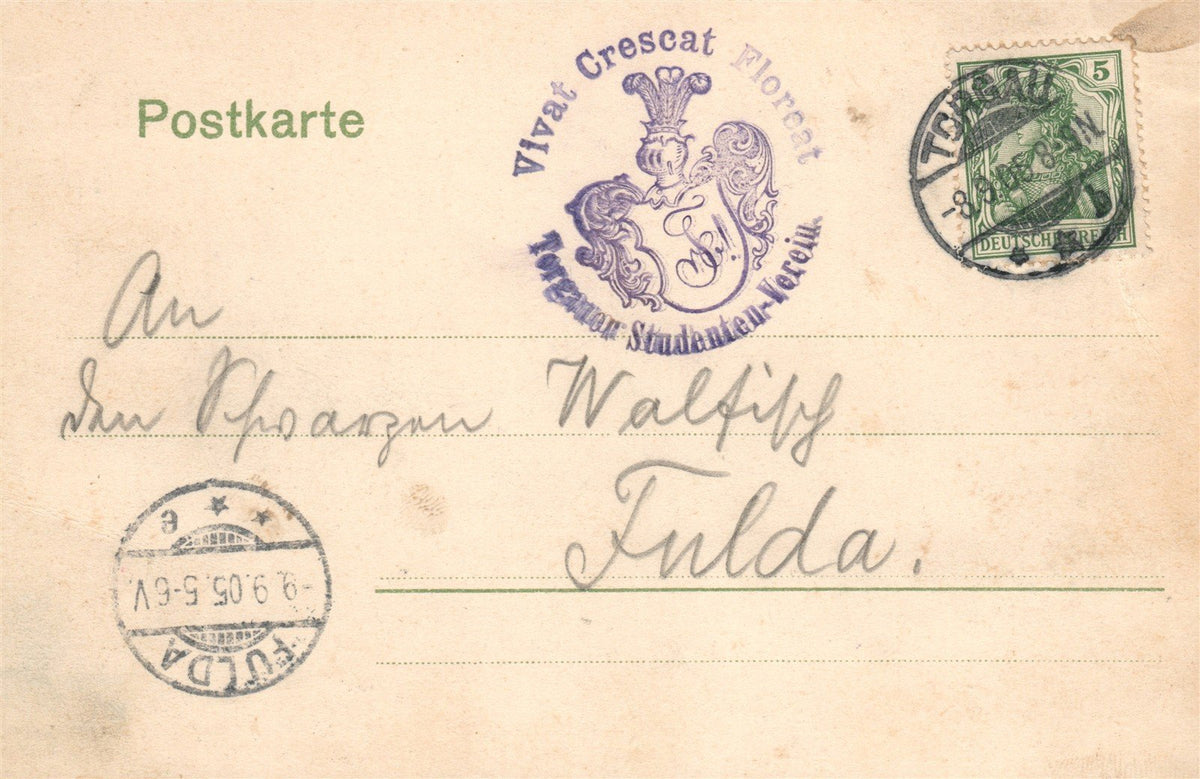 Postkarte
Vivat Crescat Florcat
Torgauer Studenten-Verein.
5
TORGAU
-8.9.05. 8-9N
b
DEUTSCHES REICH
An
den Schwarzen Walfisch
Fulda.
e
-9.9.05.5-6V.
FULDA